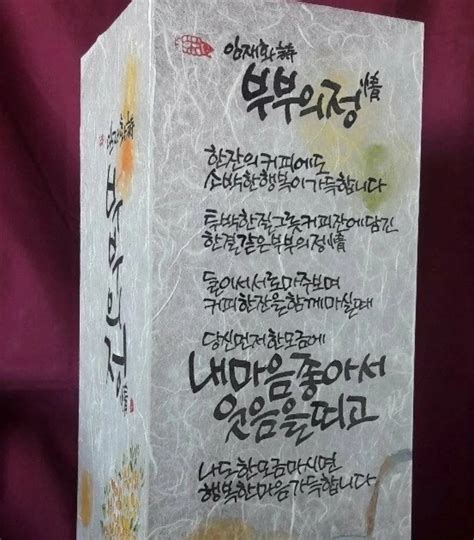 임재화 詩
부부의 정 情
한잔의 커피에도
소박한 행복이 가득합니다
투박한 질그릇 커피잔에 담긴
한결같은 부부의 정 情
둘이서 서로 마주보며
커피 한잔을 함께 마실때
당신 먼저 한모금에
내 마음 좋아서
웃음을 띠고
나도 한모금 마시면
행복한 마음 가득합니다
임재화 詩
부부의 정 情